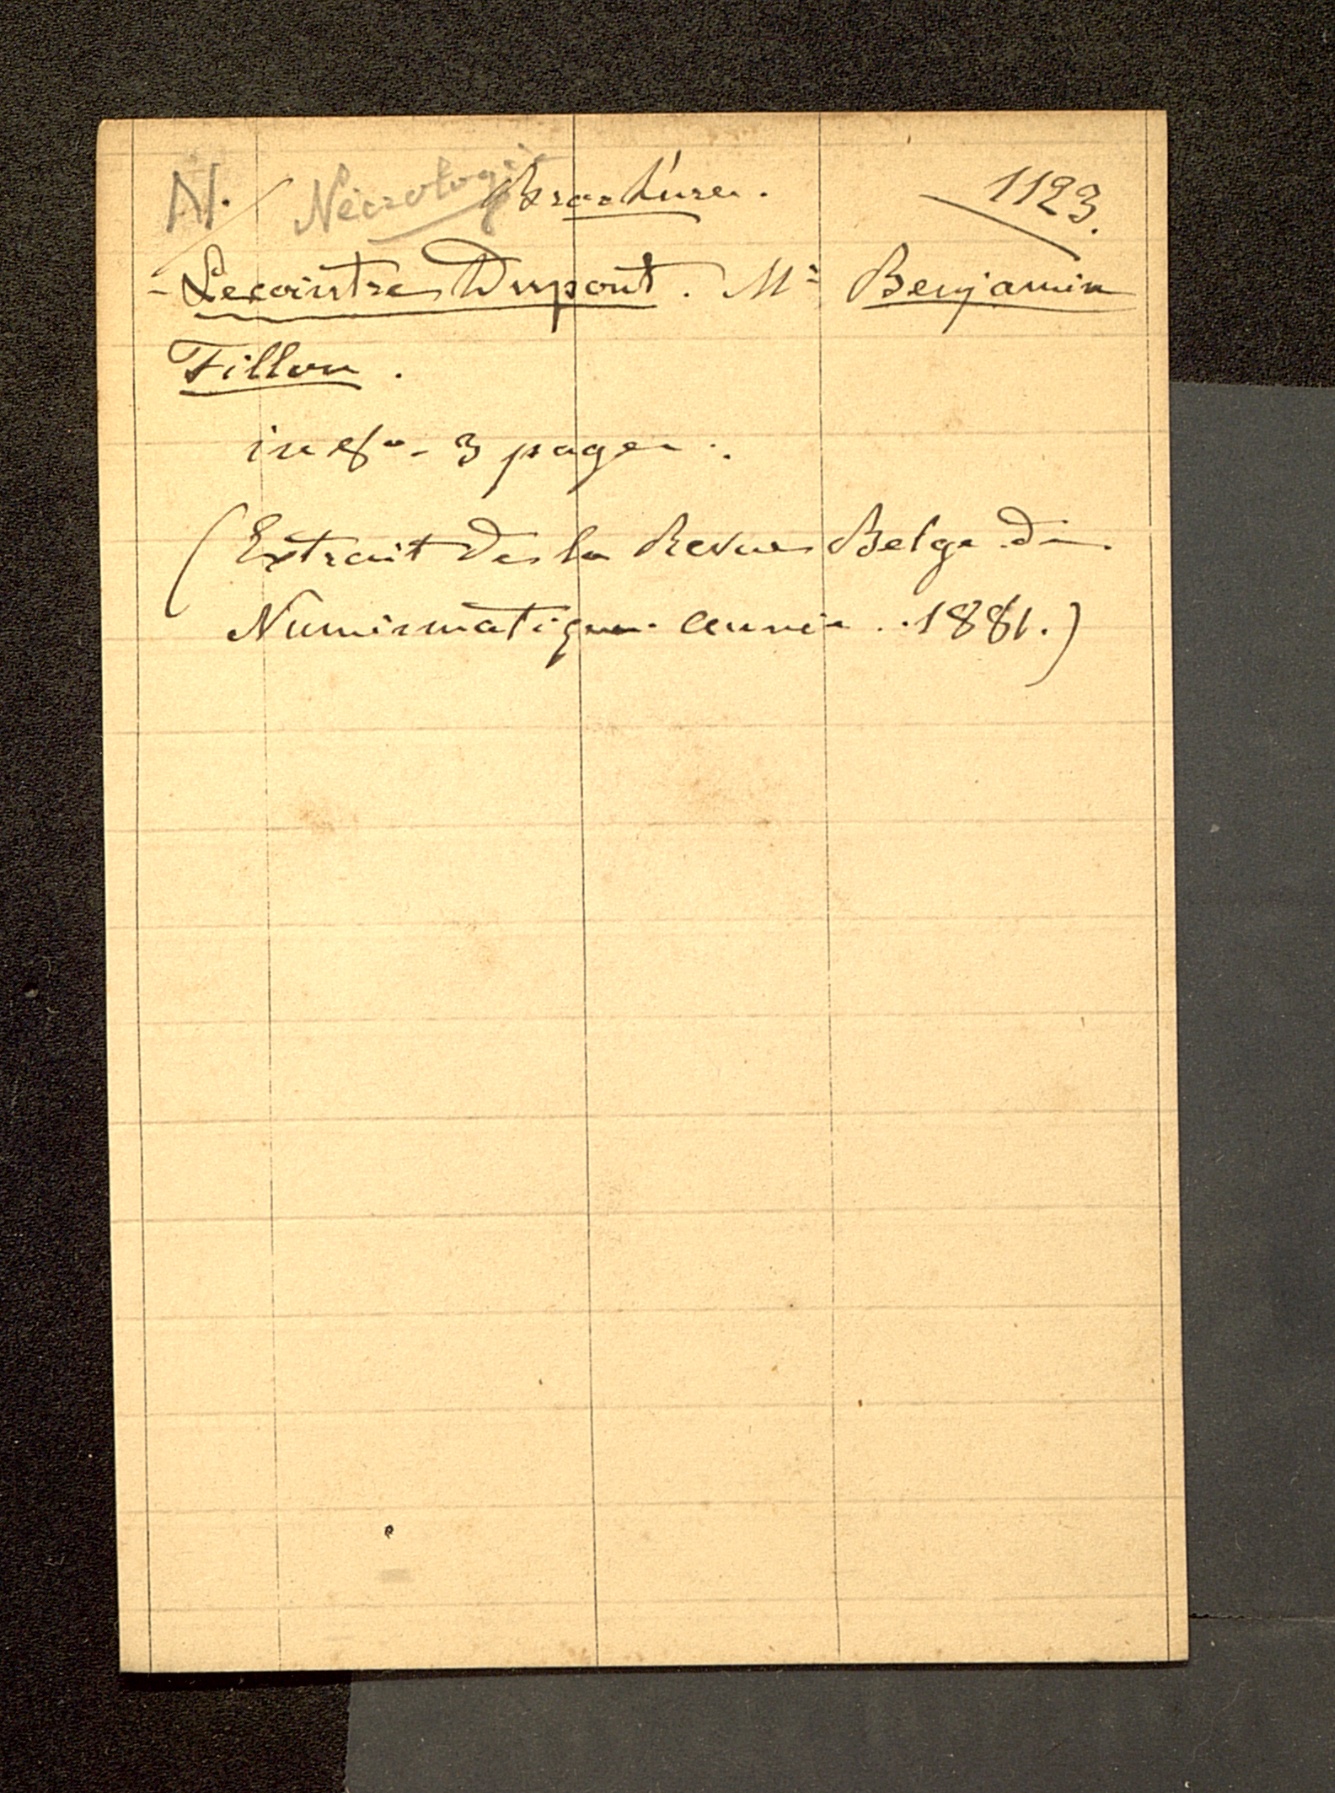 N. Nécrologie Brochures. 1123.
- Lecointre Dupont. Mr Benjamin
Fillon.
in 8o - 3 pages.
(Extrait de la Revue Belge de
Numismatique année. 1881.)